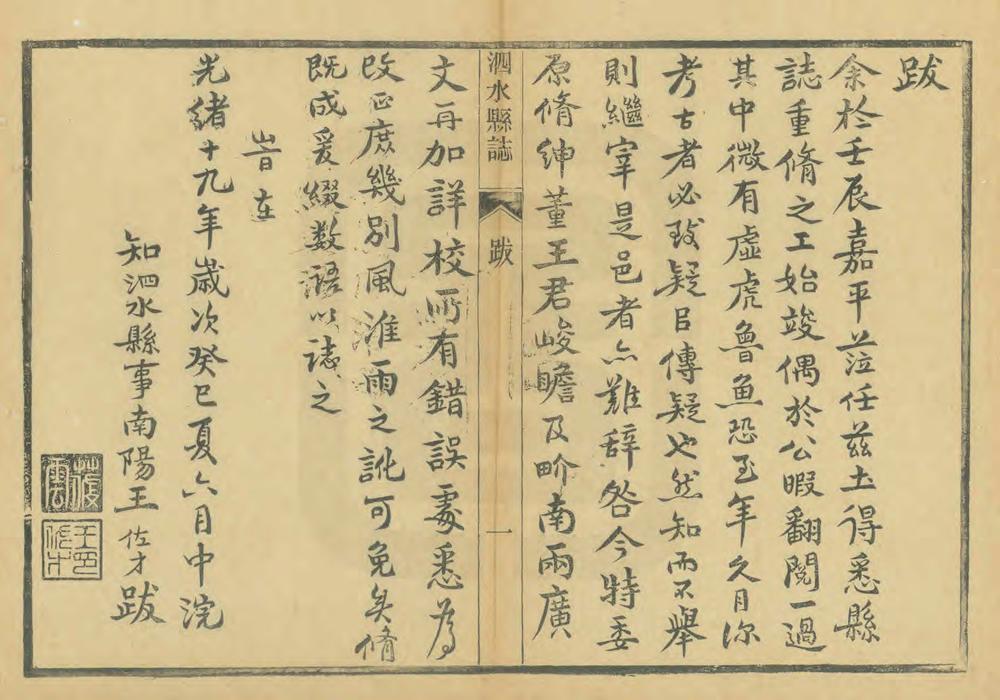 跋
余於壬辰嘉平莅任茲土得悉縣
誌重脩之工始竣偶於公暇翻閱一過
其中微有虛虎魯魚恐至年久日深
考古者必致疑㠯傳疑也然知而不舉
則繼宰是邑者亦難辞咎今特委
原脩紳董王君峻瞻及畍南兩廣
泗水縣誌
跋
一
文再加詳校所有錯誤處悉為
改正庶幾別風淮雨之訛可免矣脩
既成爰綴数語以誌之
旹在
光緒十九年歲次癸巳夏六月中浣
知泗水縣事南陽王佐才跋